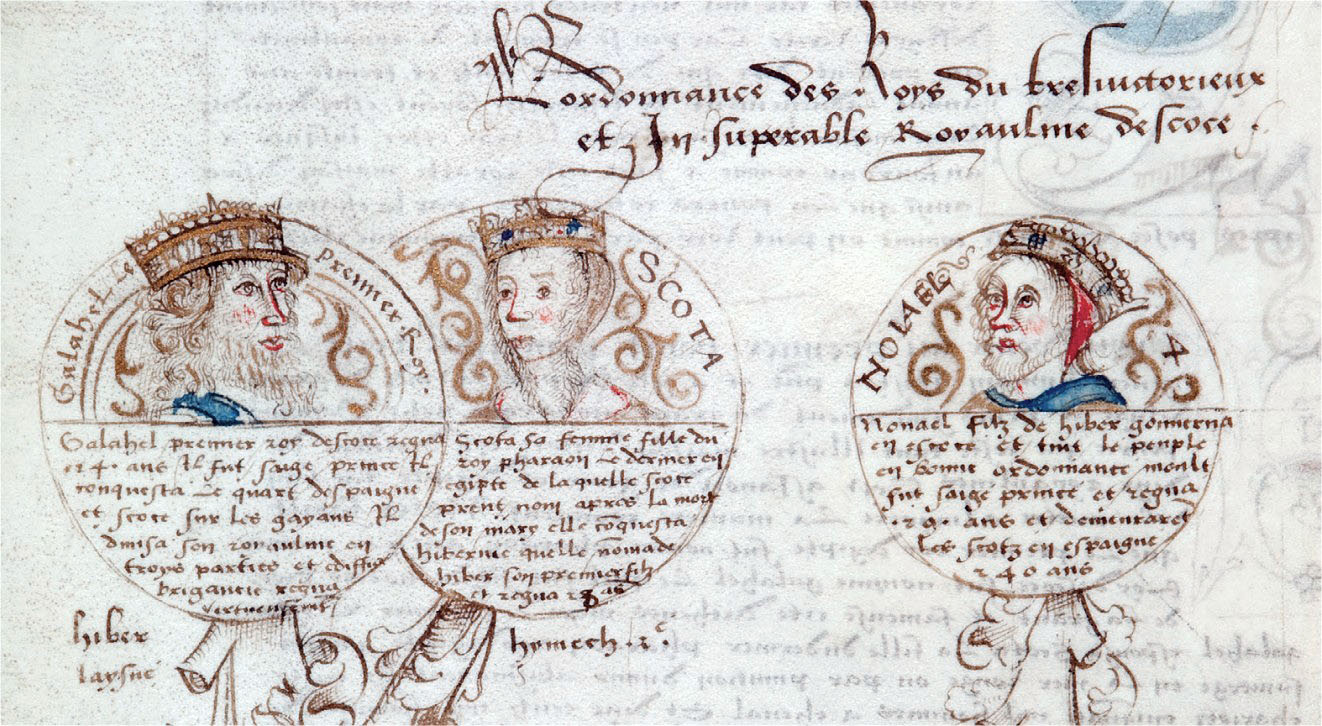 Lordonnance des Roys du tresuictorieux
et Insuperable Royaulme descoce
Galahel Le premier Roy.
SCOTA
NOLAEL
4
Galahel premier roy descoce regna
24. ans Il fut saige prince Il
conquesta Le quart despaigne
et scoce sur les gayans Il
diuisa son royaulme en
troys parties et ediffia
brigancie regna
vertueusement
Scota sa femme fille du
roy pharaon Le dernier en
egipte de la quelle scoce
prent nom apres la mort
de son mary elle coquesta
hibernie quelle nomma de
hiber son premier filz
et regna ans
Nonael filz de hiber gouuerna
en escoce et tint le peuple
en bonne ordonnance moult
fut saige prince et regna
29. ans et demeurarēt
les scotz en espaigne
240 ans
hiber
laysne
hymech. 2.